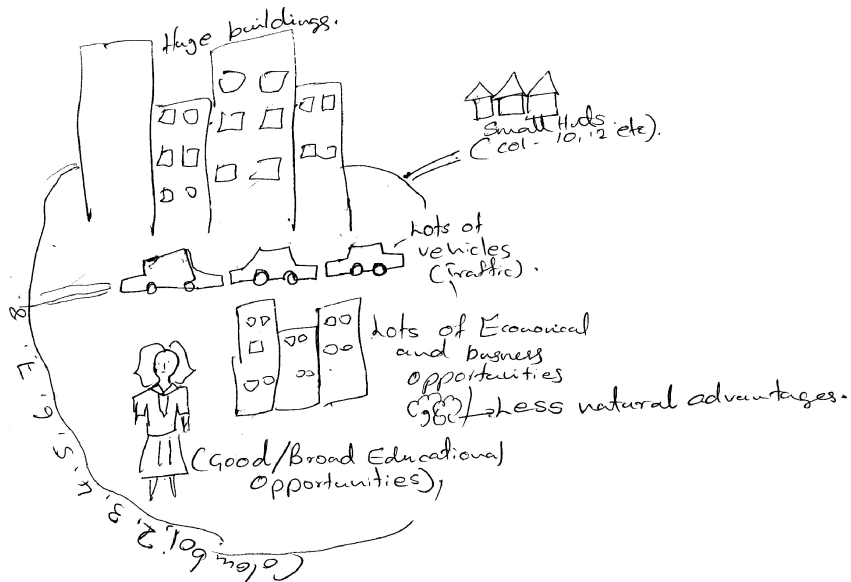 Huge buildings.
Small Huds
(col - 10, 12 etc).
Lots of
vehicles
(Traffic).
Lots of Economical
and business
opportunities
Less natural advantages.
(Good/Broad Educational
Opportunities),
Colombo 1, 2, 3, 4, 5, 6, 7, 8